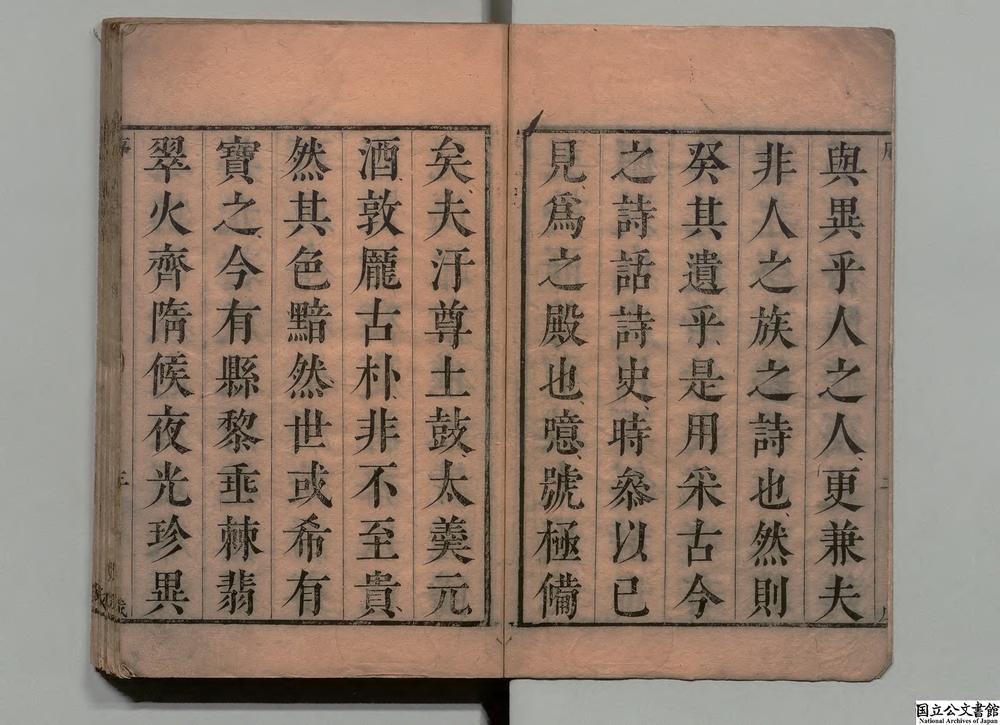 與異乎人之人更兼夫
非人之族之詩也然則
癸其遺乎是用采古今
之詩話詩史時叅以已
見爲之殿也噫號極備
矣夫汙尊土鼓太羹元
酒敦龐古朴非不至貴
然其色黯然世或希有
寶之今有縣黎垂棘翡
翠火齊隋候夜光珍異
国立公文書館
National Archives of Japan